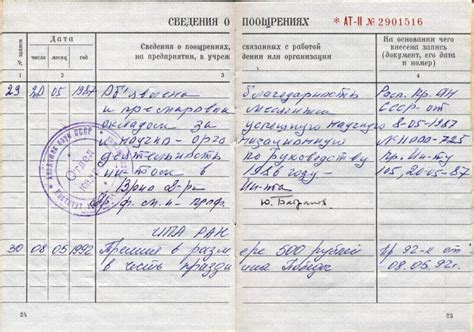 СВЕДЕНИЯ О ПООЩРЕНИЯХ
* АТ-II № 2901516
№ записи
Дата
число
месяц
год
Сведения о поощрениях, связанных с работой
на предприятии, в учреждении или организации
На основании чего
внесена запись
(документ, его дата
и номер)
1
2
3
4
29 20 05 1987 Объявлена благодарность
и премирован месячным
окладом за успешную научную
и научно-организационную
деятельность по руководству
ин-том в 1986 году
Врио д-ра ин-та
Расп. Пр. АН
СССР от
8-05-1987
№ 11000-725
Пр. Ин-ту
105, 20-05-87
ИПА РАН
30 08 05 1992 Премия в размере 500 рублей
в честь праздника Победы
Пр 92-к от
08.05.92г.
24
25